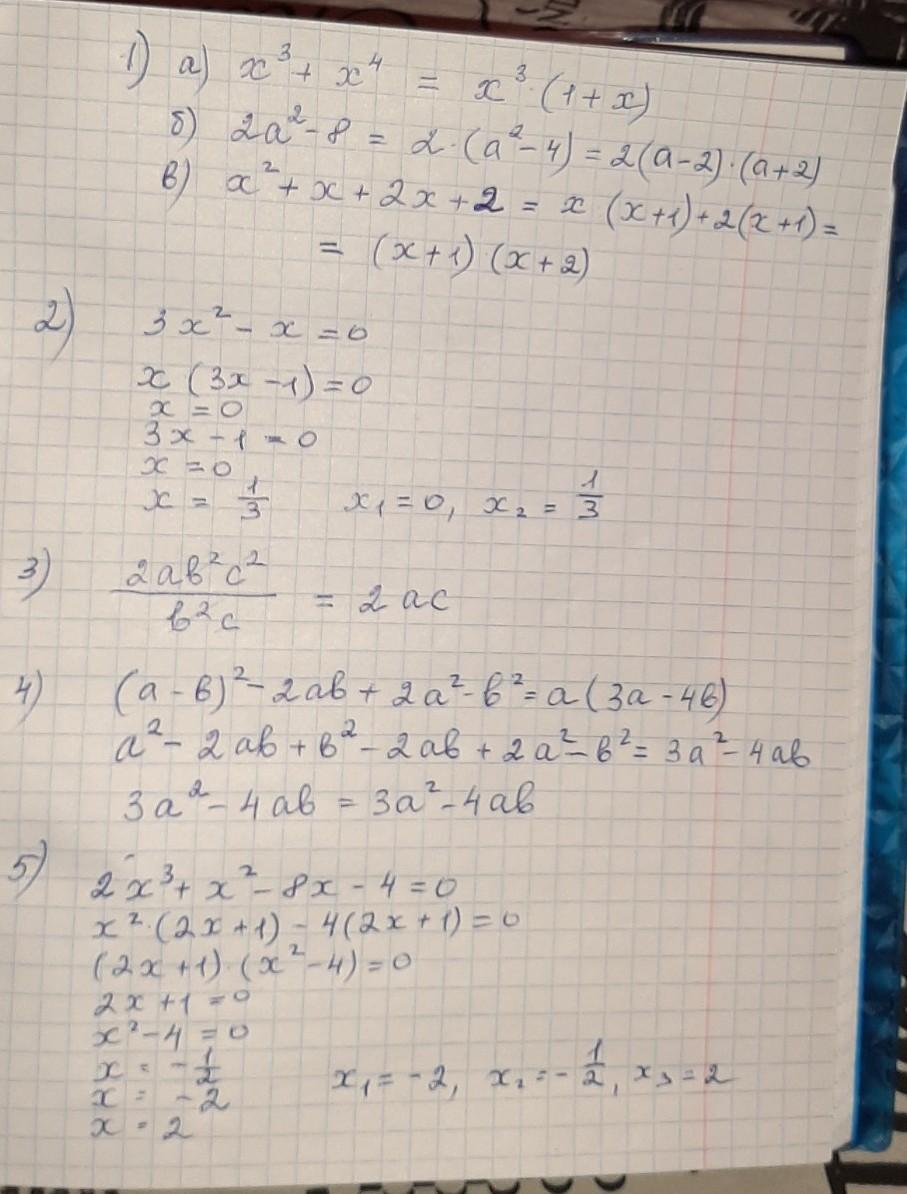 1) а) x³ + x⁴ = x³·(1+x)
б) 2a² - 8 = 2·(a² - 4) = 2(a-2)·(a+2)
в) x² + x + 2x + 2 = x (x+1) + 2(x+1) =
= (x+1)·(x+2)
2) 3x² - x = 0
x (3x - 1) = 0
x = 0
3x - 1 = 0
x = 0
x = 1/3 x₁ = 0, x₂ = 1/3
3) 2ab²c² / b²c = 2ac
4) (a - b)² - 2ab + 2a² - b² = a(3a - 4b)
a² - 2ab + b² - 2ab + 2a² - b² = 3a² - 4ab
3a² - 4ab = 3a² - 4ab
5) 2x³ + x² - 8x - 4 = 0
x²·(2x+1) - 4(2x+1) = 0
(2x+1)·(x² - 4) = 0
2x + 1 = 0
x² - 4 = 0
x = -1/2
x = -2 x₁ = -2, x₂ = -1/2, x₃ = 2
x = 2